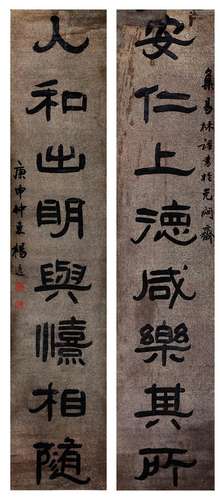 集易林語書於元
安仁上德咸樂其所
人和出明與憘相隨
庚申仲夏楊逸